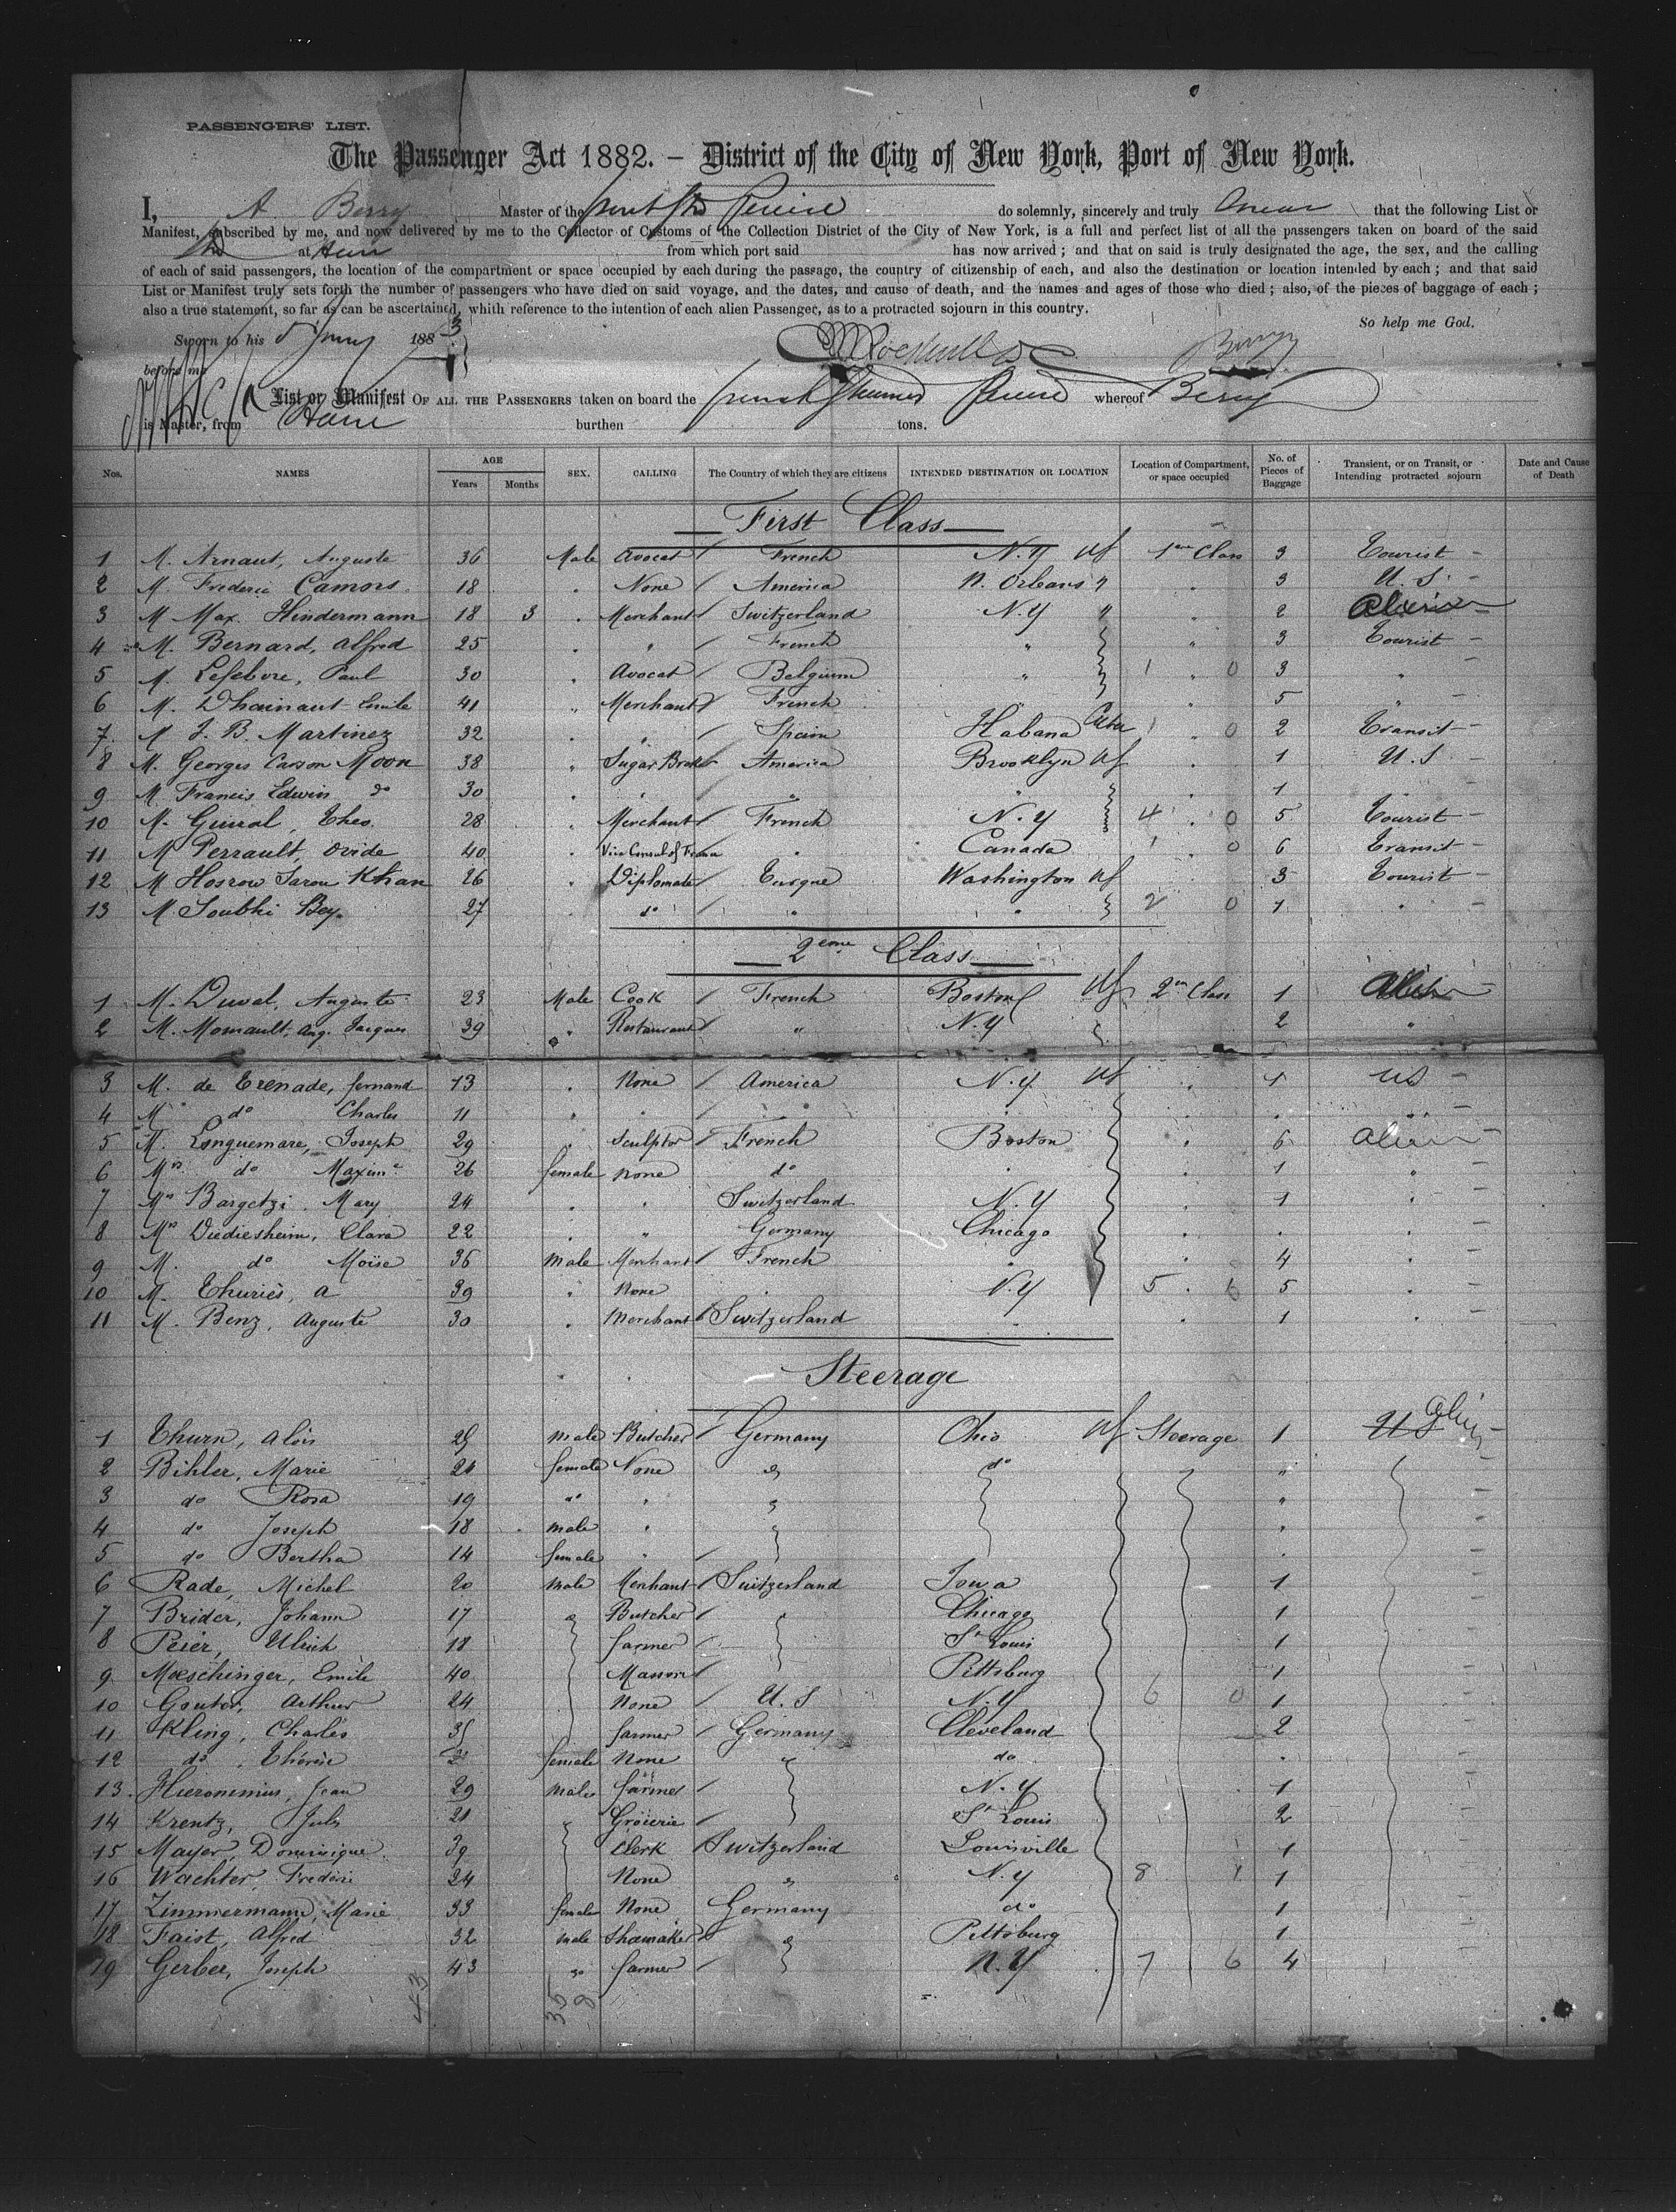 PASSENGERS' LIST.
The Passenger Act 1882. – District of the City of New York, Port of New York.
I, A Berry Master of the do solemnly, sincerely and truly that the following List or
Manifest, subscribed by me, and now delivered by me to the Collector of Customs of the Collection District of the City of New York, is a full and perfect list of all the passengers taken on board of the said
at from which port said has now arrived ; and that on said is truly designated the age, the sex, and the calling
of each of said passengers, the location of the compartment or space occupied by each during the passage, the country of citizenship of each, and also the destination or location intended by each ; and that said
List or Manifest truly sets forth the number of passengers who have died on said voyage, and the dates, and cause of death, and the names and ages of those who died ; also, of the pieces of baggage of each ;
also a true statement, so far as can be ascertained, whith reference to the intention of each alien Passenger, as to a protracted sojourn in this country.
So help me God.
Sworn to his 1883
before me
List or Manifest OF ALL THE PASSENGERS taken on board the whereof Berry
is Master, from burthen tons.
Nos. NAMES AGE Years Months SEX. CALLING The Country of which they are citizens INTENDED DESTINATION OR LOCATION Location of Compartment, or space occupied No. of Pieces of Baggage Transient, or on Transit, or Intending protracted sojourn Date and Cause of Death
First Class
1 M. Arnaut, Auguste 36 Male Avocat French N.Y 1ere Class 3 Tourist
2 M Frederic Camors 18 " None America N. Orleans " " 3 U.S.
3 M Max. Hindermann 18 3 " Merchant Switzerland N.Y " " 2 Alien
4 M. Bernard, Alfred 25 " " French " " 3 Tourist
5 M. Lefebvre, Paul 30 " Avocat Belgium " 1 " 0 3 "
6 M. Dhainaut Emile 41 " Merchant French " " 5 "
7 M J. B. Martinez 32 " " Spain Habana Cuba 1 " 0 2 Transit
8 M. Georges Carson Moon 38 " Sugar Broker America Brooklyn " 1 U.S
9 M. Francis Edwin do 30 " " " " " 1 "
10 M. Theo. 28 " Merchant French N.Y 4 " 0 5 Tourist
11 M Perrault, Ovide 40 " Vice Consul of France " Canada 1 " 0 6 Transit
12 M Hosrow Khan 26 " Diplomate Washington 3 Tourist
13 M Soubhi Bey. 27 " do " " 2 0 1 "
2eme Class
1 M. Duval, Auguste 23 Male Cook French Boston 2me Class 1 Alien
2 M. Aug. Jacques 39 " Restaurant " N.Y 2 "
3 M. de Trenade, fernand 13 " None America N.Y " 1 US
4 M do Charles 11 " " " " " " "
5 M. Longuemare, Joseph 29 " Sculptor French Boston " 6 Alien
6 Mrs do 26 female none do " " 1 "
7 Bargetzi Mary 24 " " Switzerland N.Y 1 "
8 Clara 22 " " Germany Chicago " " "
9 M. do Moïse 36 male Merchant French " " 4 "
10 M. Thuriès, A 39 " None " N.Y 5 " 6 5 "
11 M. Benz, Auguste 30 " Merchant Switzerland " " 1 "
Steerage
1 Thurn, Alois male Butcher Germany Ohio Steerage 1 U S Alien
2 Bihler, Marie female None " do "
3 do Rosa 19 " " " "
4 do Joseph 18 male " " "
5 do Bertha 14 female " "
6 Rade, Michel 20 male Merchant Switzerland Iowa 1
7 Brider, Johann 17 " Butcher " Chicago 1
8 Peier, Ulrich 18 farmer St Louis 1
9 Moeschinger, Emile 40 Mason Pittsburg 1
10 Arthur 24 None U.S N.Y 6 0 1
11 Kling, Charles farmer Germany Cleveland 2
12 do Thérèse female None " do "
13 Hieronimus, Jean 29 male farmer N.Y 1
14 Krentz, Jules " St Louis 2
15 Mayer, Dominique 39 Clerk Switzerland Louisville 1
16 Wachter, Frederic 24 None " N.Y 8 1 1
17 Zimmermann, Marie 33 female None Germany do 1
18 Faist, Alfred 32 male Shoemaker " Pittsburg 1
19 Gerber, Joseph 43 do farmer N.Y 7 6 4
43 35